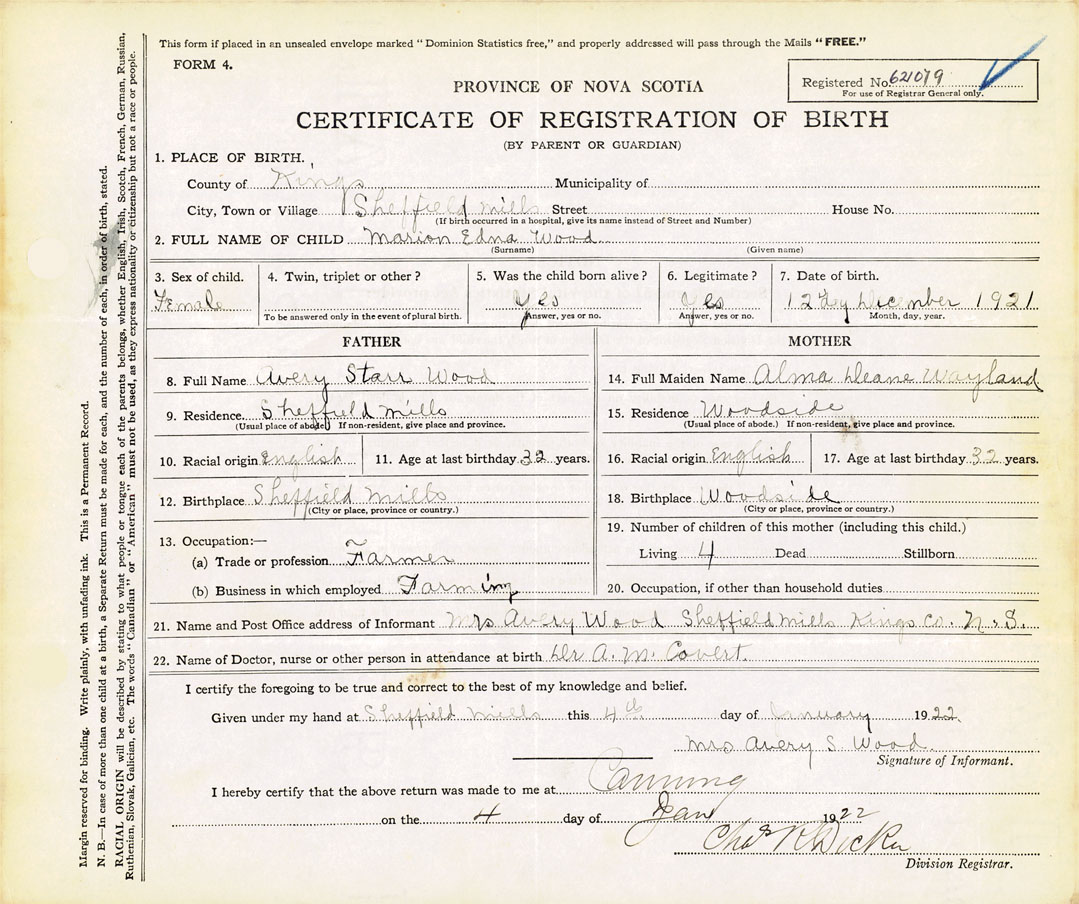 This form if placed in an unsealed envelope marked "Dominion Statistics free," and properly addressed will pass through the Mails "FREE."
FORM 4.
Registered No. 621079
For use of Registrar General only.
PROVINCE OF NOVA SCOTIA
CERTIFICATE OF REGISTRATION OF BIRTH
(BY PARENT OR GUARDIAN)
1. PLACE OF BIRTH.
County of Kings Municipality of
City, Town or Village Sheffield Mills Street House No.
(If birth occurred in a hospital, give its name instead of Street and Number)
2. FULL NAME OF CHILD Marion Edna Wood
(Surname) (Given name)
3. Sex of child. 4. Twin, triplet or other? 5. Was the child born alive? 6. Legitimate? 7. Date of birth.
Female Yes Yes 12 day December 1921
To be answered only in the event of plural birth. Answer, yes or no. Answer, yes or no. Month, day, year.
FATHER
8. Full Name Avery Starr Wood
9. Residence Sheffield Mills
(Usual place of abode) If non-resident, give place and province.
10. Racial origin English 11. Age at last birthday 32 years.
12. Birthplace Sheffield Mills
(City or place, province or country.)
13. Occupation:—
(a) Trade or profession Farmer
(b) Business in which employed Farming
MOTHER
14. Full Maiden Name Alma Deane Wayland
15. Residence Woodside
(Usual place of abode.) If non-resident, give place and province.
16. Racial origin English 17. Age at last birthday 32 years.
18. Birthplace Woodside
(City or place, province or country.)
19. Number of children of this mother (including this child.)
Living 4 Dead Stillborn
20. Occupation, if other than household duties
21. Name and Post Office address of Informant Mrs Avery Wood Sheffield Mills Kings Co. N.S.
22. Name of Doctor, nurse or other person in attendance at birth Dr A. M. Covert.
I certify the foregoing to be true and correct to the best of my knowledge and belief.
Given under my hand at Sheffield Mills this 4th day of January 1922.
Mrs Avery S. Wood.
Signature of Informant.
I hereby certify that the above return was made to me at Canning
on the 4 day of Jan 1922
Chas R
Division Registrar.
Margin reserved for binding. Write plainly, with unfading ink. This is a Permanent Record.
N. B.—In case of more than one child at a birth, a Separate Return must be made for each, and the number of each, in order of birth, stated.
RACIAL ORIGIN will be described by stating to what people or tongue each of the parents belongs, whether English, Irish, Scotch, French, German, Russian,
Ruthenian, Slovak, Galician, etc. The words "Canadian" or "American" must not be used, as they express nationality or citizenship but not a race or people.